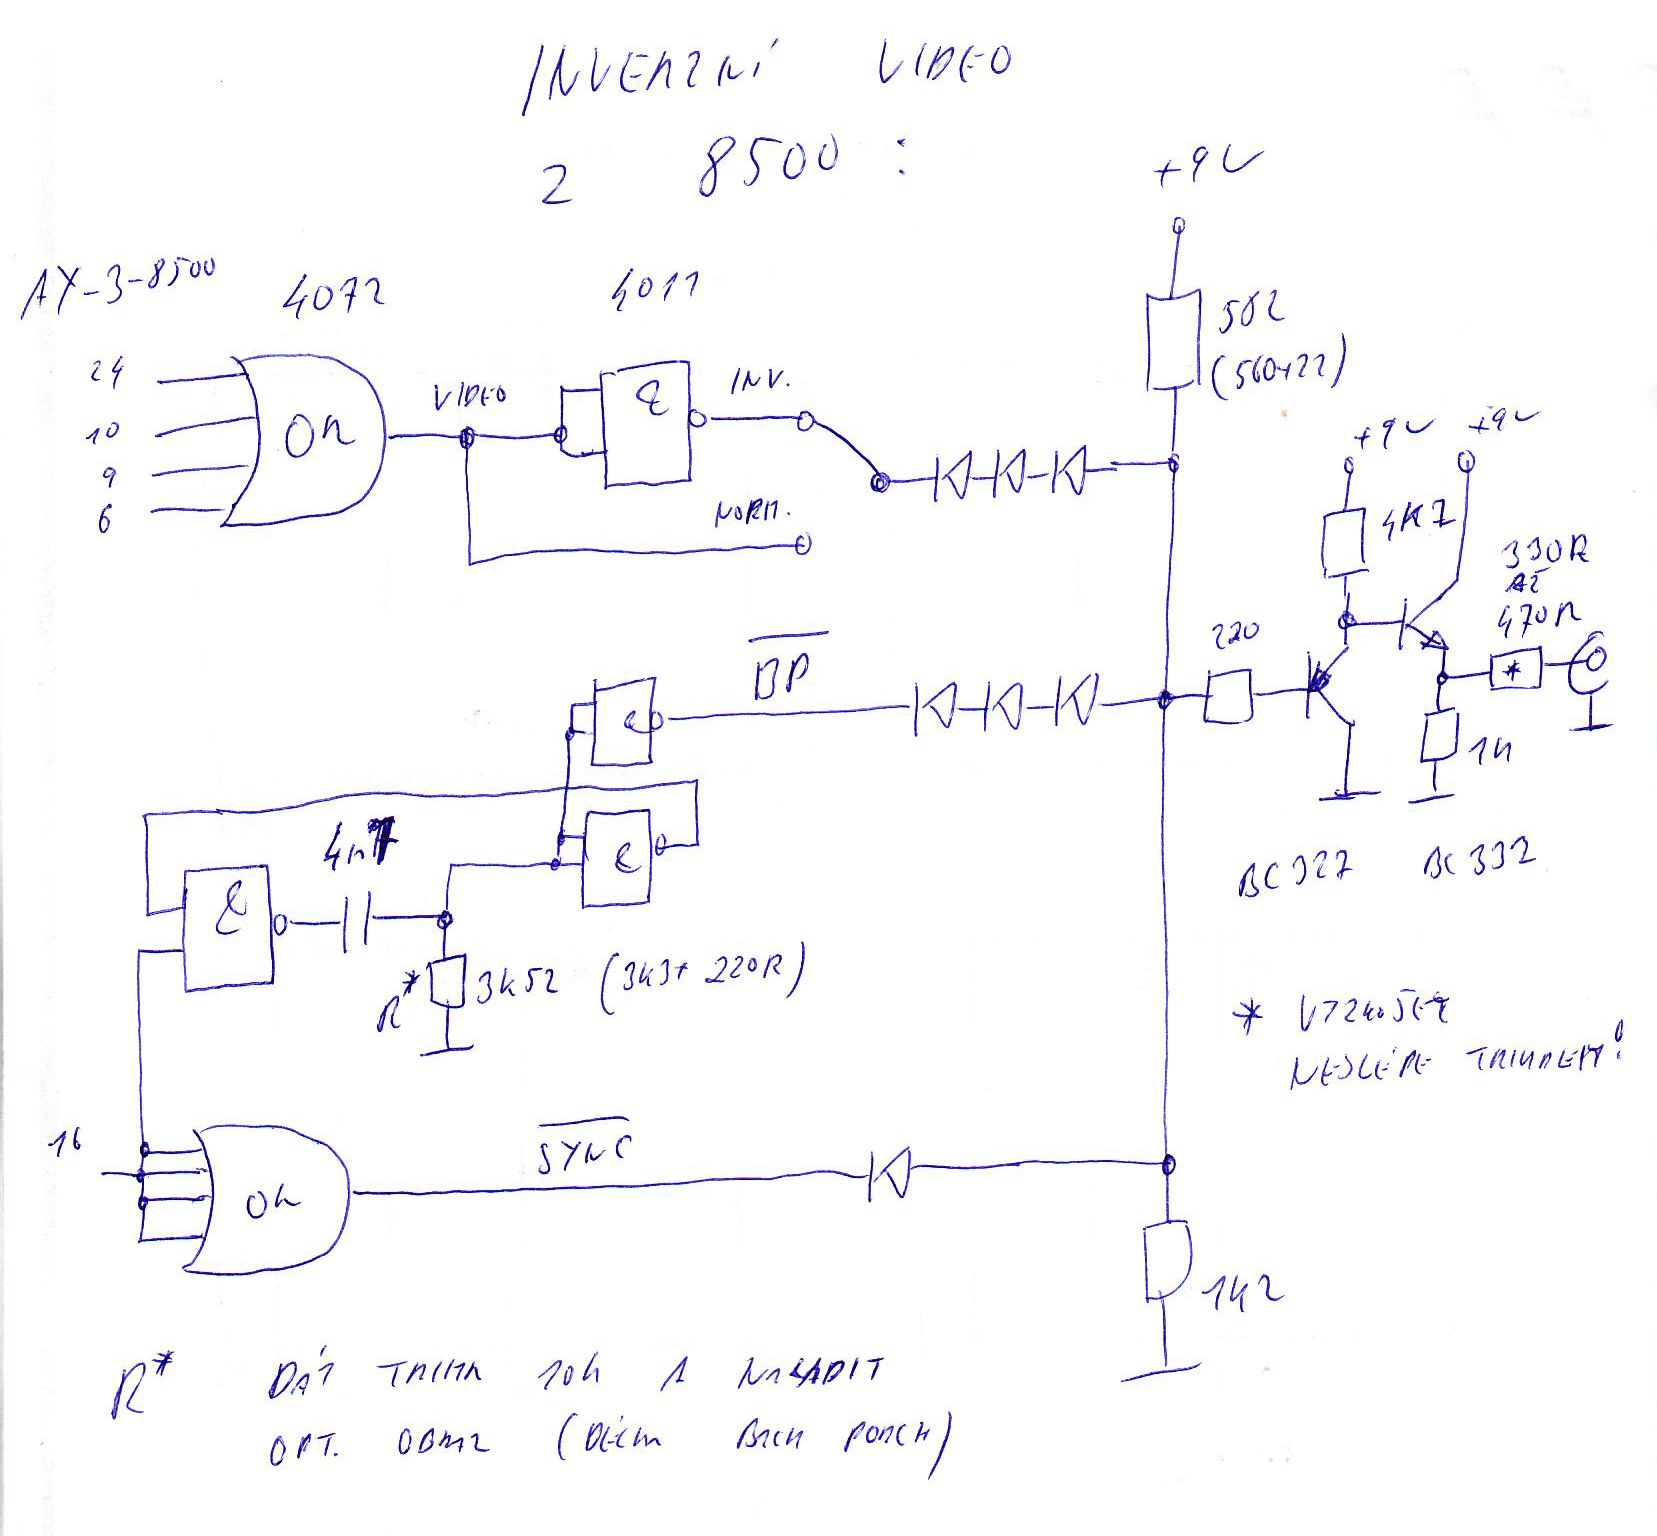 INVERZNÍ VIDEO
Z 8500 :
+9V
AY-3-8500
4072
4011
24
10
9
6
OR
VIDEO
&
INV.
NORM.
582
(560+22)
+9V
+9V
4K7
330R
AŽ
470R
*
220
1k
BC327
BC337
BP
&
&
4n7
&
R*
3k52 (3k3+220R)
* VYZKOUŠET
NEJLÉPE TRIMREM!
16
OR
SYNC
1k2
R* DÁT TRIMR 10k A NALADIT
OPT. OBRAZ (DÉLKA BACK PORCH)